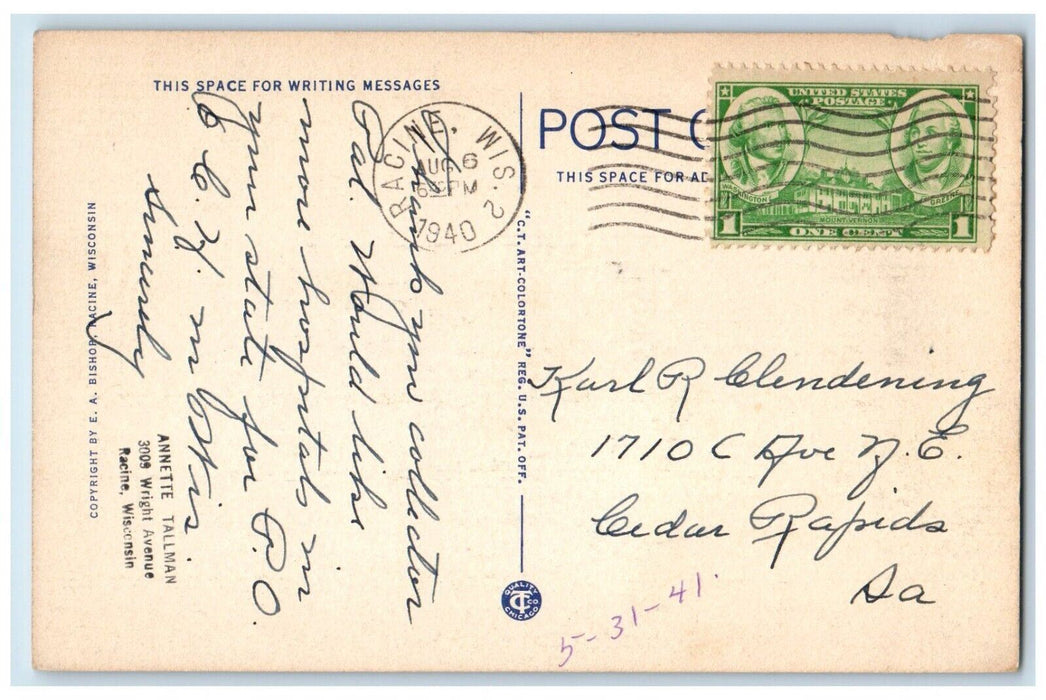 THIS SPACE FOR WRITING MESSAGES
Thank you collector
Pal. Would like
more hospitals in
your state for P.O.
& C. H. in Wis.
Sincerely
ANNETTE TALLMAN
3009 Wright Avenue
Racine, Wisconsin
COPYRIGHT BY E. A. BISHOP, RACINE, WISCONSIN
RACINE, WIS. 2
AUG 6
PM
1940
"C.T. ART-COLORTONE" REG. U.S. PAT. OFF.
QUALITY
CT CO
CHICAGO
POST C
THIS SPACE FOR AD
UNITED STATES
POSTAGE
WASHINGTON
GREENE
MOUNT VERNON
1 ONE CENT 1
Karl R Clendening
1710 C Ave N.E.
Cedar Rapids
Ia
5-31-41.